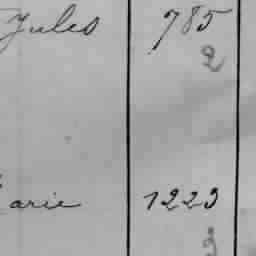 Jules 785
2
arie 1223